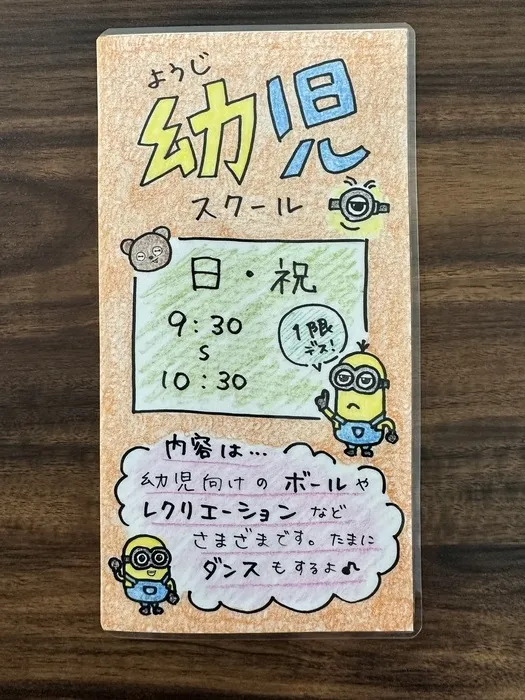 ようじ
幼児
スクール
日・祝
9:30
s
10:30
1限
デス!
内容は…
幼児向けのボールや
レクリエーションなど
さまざまです。たまに
ダンスもするよ♪